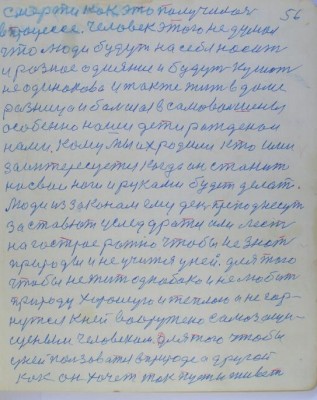 смерти как это получилоя 56
в процессе. Человек этого не думал
что люди будут на себя носит
и разное одияние и будут кушат
не одинаково и также жит в доме
разница и балшая в самовольшению
особенно наши дети рожденои
нами. Кому мы их родили кто ими
заинтересуется когда он станит
на свои ноги и руками будит делат.
Люди из законам ему ден преподнесут
заставют услед драти или лест
на гострое ражно чтобы не знат
природы и не учится у ней. для того
чтобы не жит одинаково и не любит
природу хорошую и теплою и не гор-
нутся к ней вооружено самозащи-
щеным человеком. для того чтобы
у ней ползоватя в природе а другой
как он хочет так пуст и живет